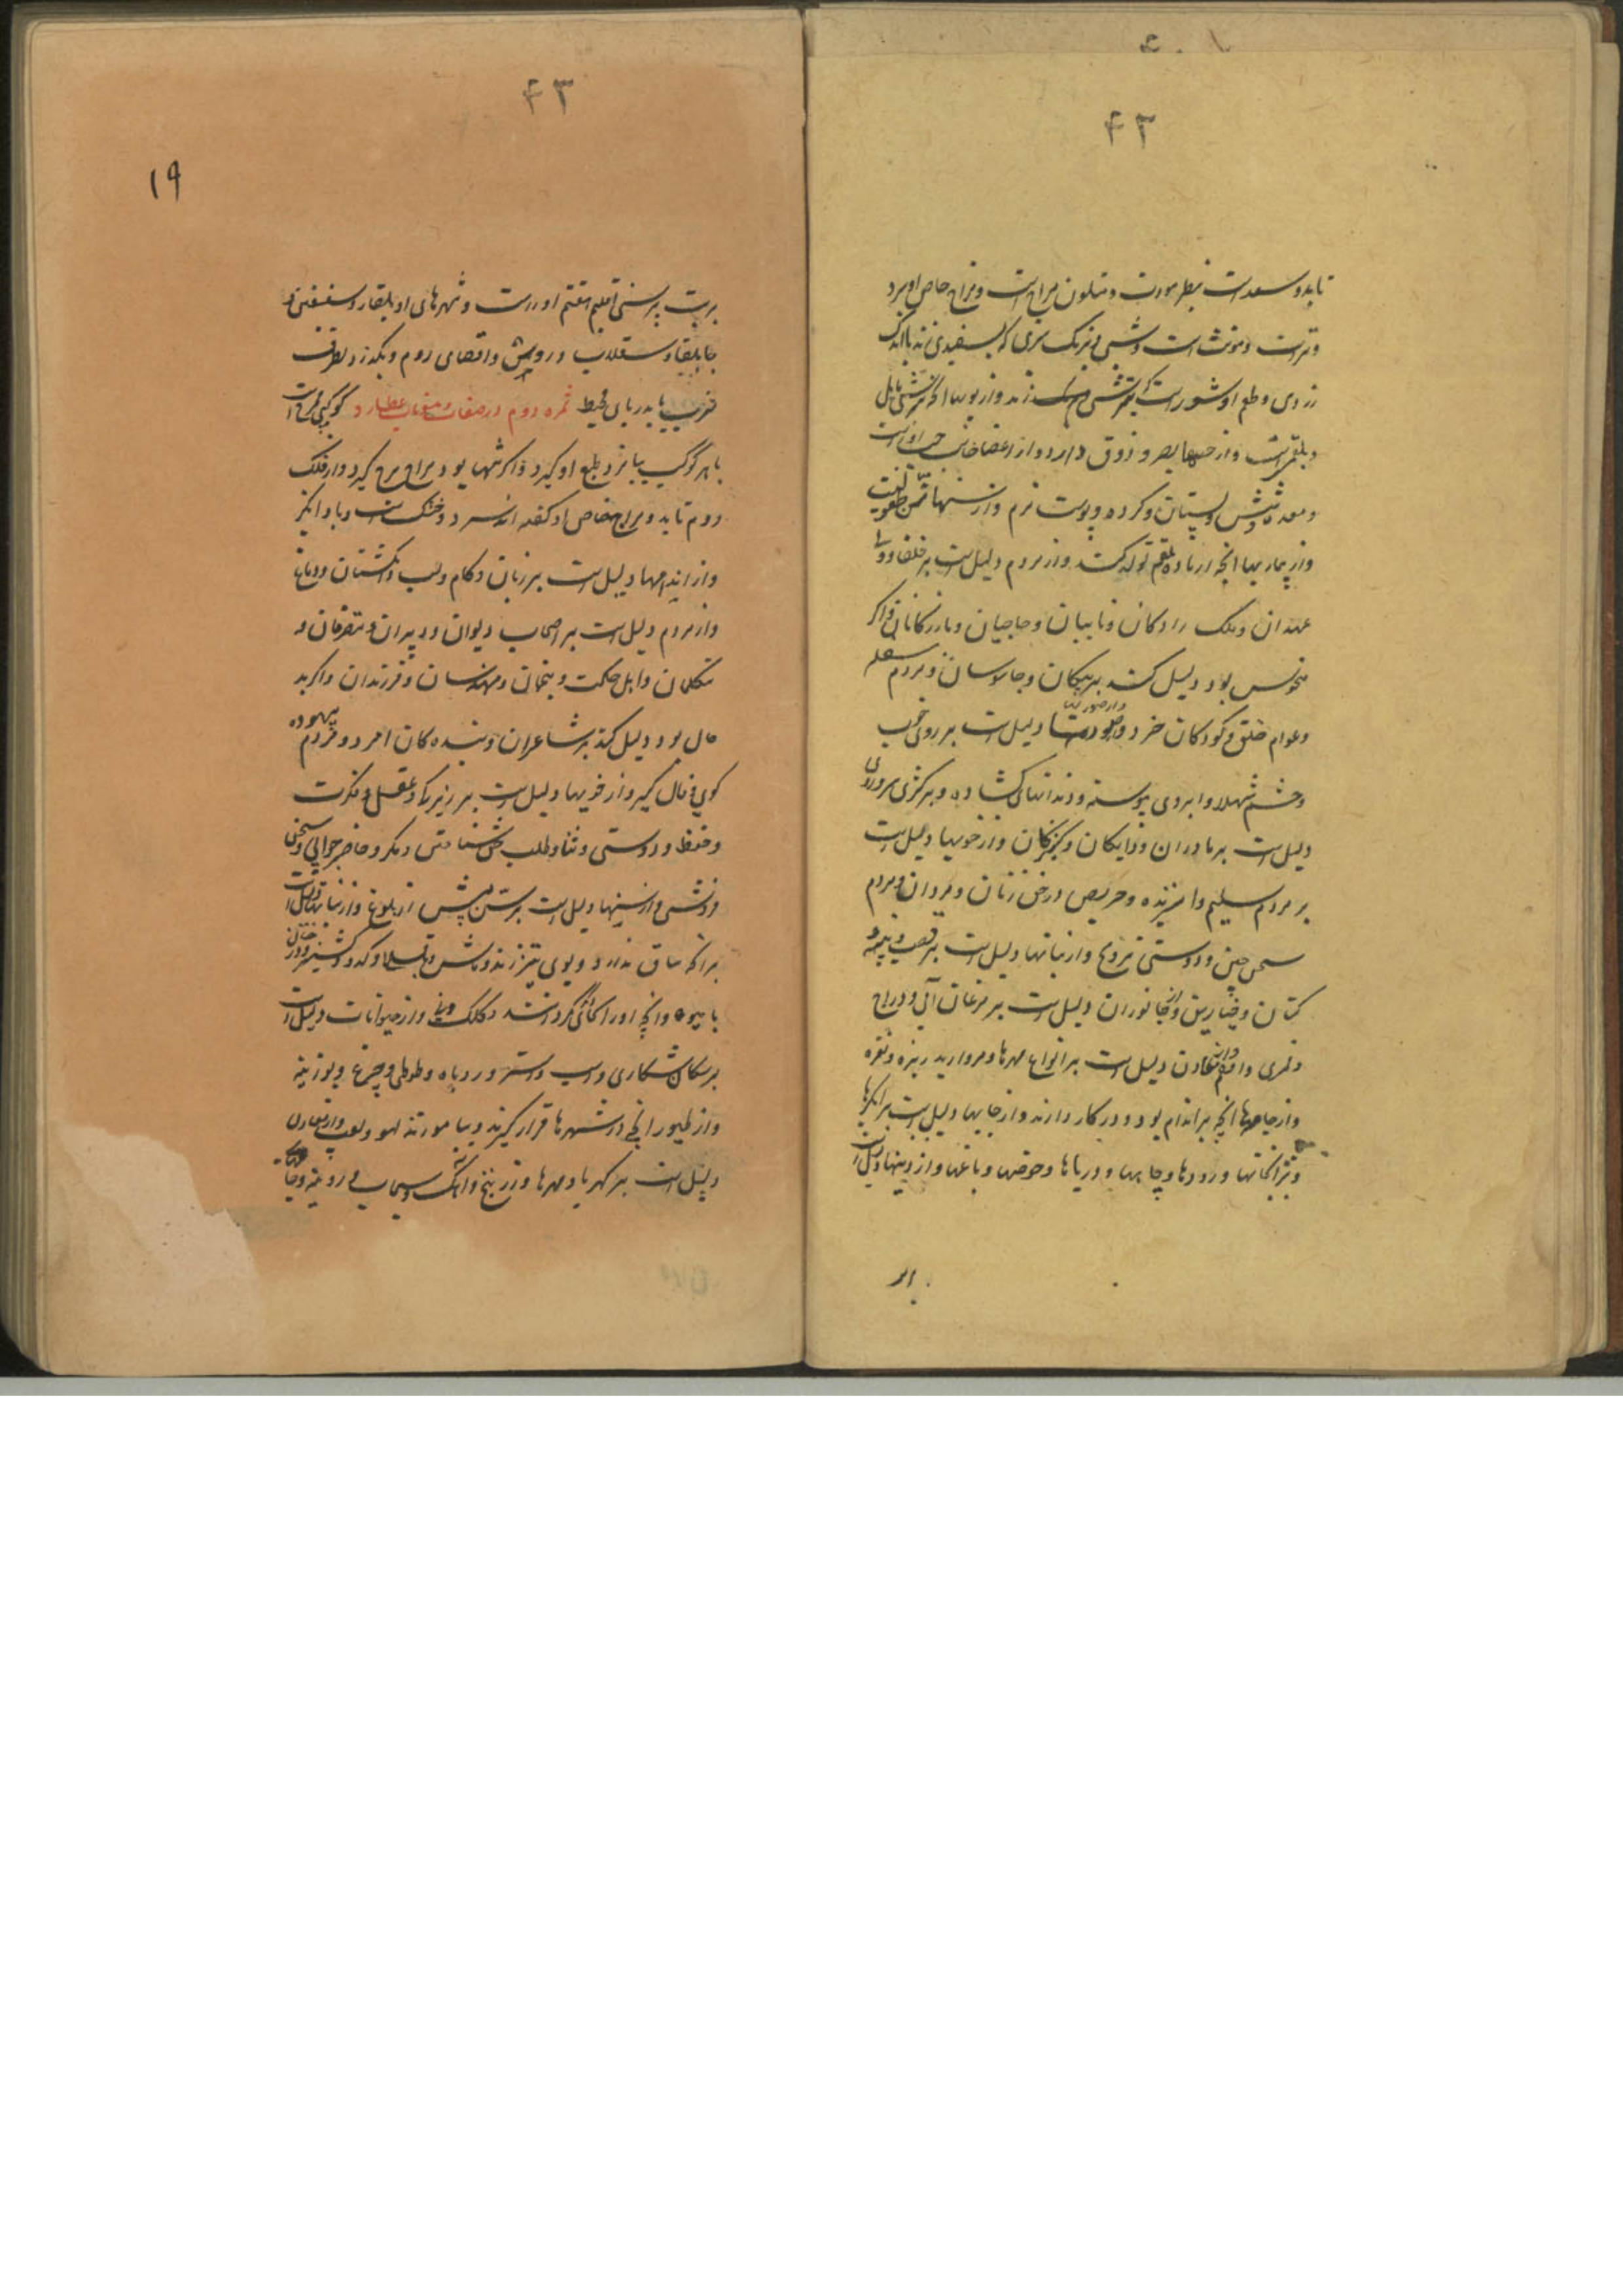 ۴۳
تابد و سعد است بنظر مودت و متلون مزاج است و مزاج خاص او سرد
و تر است و مونث است و شبی و برنگ سبزی که بسفیدی زند با اندک
زردی و طعم او شور است که بترشی زند و از بویها آنکه بترشی مایل
و از حسها بصر و ذوق دارد و از اعضا جانب چپ او راست
و معده و شش و پستان و کرده و پوست نرم و از سنها سن طفولیت
و از بیماریها انچه از ماده بلغم تولد کند و از مردم دلیل است بر خلفا و
عهدان و ملک زادکان و نایبان و حاجیان و بازرکانان و اکر
منحوس بود دلیل کند بر پیکان و جاسوسان و مردم سفله
و عوام خلق و کودکان خرد و از صورتها دلیل است بر روی خوب
و چشم شهلا و ابروی پیوسته و دندانهای کشاده و بر کژی
دلیل است بر مادران و دایکان و کنیزکان و از خویها دلیل است
بر مردم سلیم و امیزنده و حریص در حق زنان و مردان و مردم
سخن چین و دوستی تزویج و از نباتها دلیل است بر قصب و پنبه و
کتان و خیارین و از جانوران دلیل است بر مرغان آبی و دراج
و قمری و از معادن دلیل است بر انواع مهرها و مروارید ریزه و نقره
و از جامها انچه بر اندام بود و در کار دارند و از جایها دلیل است بر ابکیرها
و رودها و چاهها و دریاها و حوضها و باغها و از دینها دلیل است
بر
۴۳
۱۹
بربت پرستی اقلیم هفتم او راست و شهرهای او بلغار و سقسین و
جابلقا و سقلاب و روس و اقصای روم و بکذرد بطرف
مغرب تا بدریای محیط ثمره دوم در صفات و منسوبات عطارد کوکبی ممزاج است
با هر کوکب بیامیزد طبع او کیرد و اکر تنها بود مزاج برج کیرد و از فلک
دوم تابد و مزاج خاص او کفته اند سرد و خشک است و باد انگیز
و از اندامها دلیل است بر زبان و کام و لب و انکشتان و دماغ
و از مردم دلیل است بر اصحاب دیوان و دبیران و متصرفان و
متکلمان و اهل حکمت و منجمان و مهندسان و فرزندان و اکر بد
حال بود دلیل کند بر شاعران و بنده کان امرد و مردم بیهوده
کوی و فال کیر و از خویها دلیل است بر زیرکی و عقل و فکرت
و حفظ و دوستی و ثنا و طلب حق شناختن و مکر و حاضر جوابی و سخن
فروشی و از سنها دلیل است بر سن پیش از بلوغ و از نباتها دلیل است
بر انکه ساق ندارد و بوی تیز زند و ماش و باقلا و کدو و کشنیز و
با میوه و انچه او را کنند و کلک و نی و از حیوانات دلیل است
بر سکان شکاری و اسب و استر و روباه و طوطی و چرغ و بوزینه
و از طیور انچه در شهرها قرار کیرند و بیاموزند لهو و لعب و از معادن
دلیل است بر کهربا و مهرها و زرنیخ و آهک و سیماب و